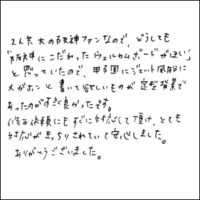 2人共大の阪神ファンなので、どうしても
「阪神にこだわったウェルカムボードがほしい」
と思っていたので、甲子園にジェット風船に
メガホンと書いて欲しいものが定型背景で
あったのがすごく良かったです。
依頼にもすぐに対応して頂け、とても
対応がきっちりされていて安心しました。
ありがとうございました。